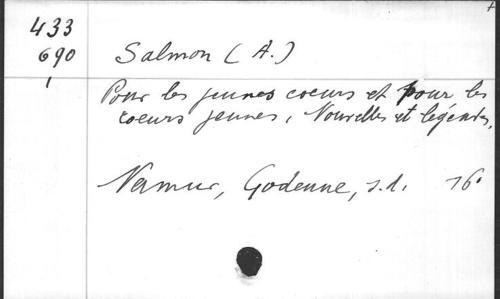 433
690
1
Salmon (A.)
Pour les jeunes coeurs et pour les
coeurs jeunes, Nouvelles et légendes.
Namur, Godenne, s.d. 16°